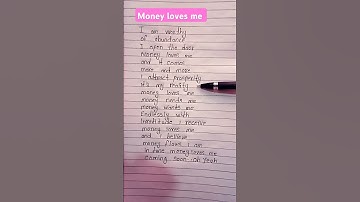 Money loves me
I am worthy
of abundance
I open the door
Money loves me
and it comes
more and more
I attract prosperity
It's my reality
money loves me
money needs me
money wants me
Endlessly with
Gratitude I receive
money loves me
and I believe
money flows I am
In tune money loves me
Coming soon oh yeah